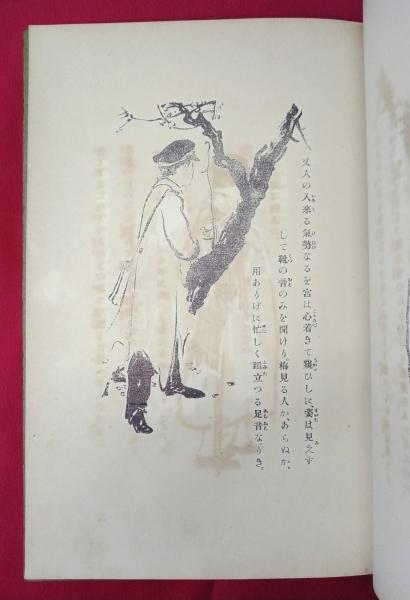 又人の入來る氣勢なるを宮は心着きて窺ひしに、姿は見えず
して靴の音のみを聞けり。梅見る人か、あらぬか、
用ありげに忙しく踏立つる足音なりき。